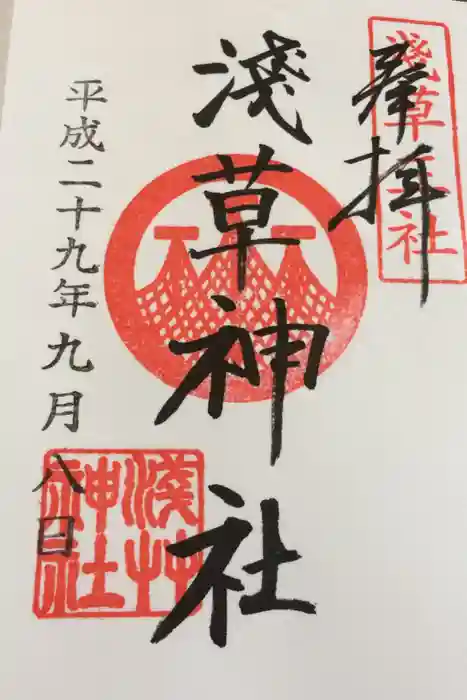 奉拝
淺草三社
淺草神社
平成二十九年九月八日
淺草神社